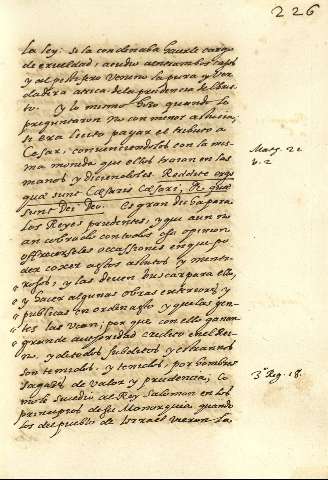 226
la ley: si la condenaba hazerle cargo
de crueldad; acudio a entrambos casos
y al pestifero veneno la pura y ver
dadera atriaca de la prudencia de Chris
to. Y lo mismo hizo quando le
preguntaron no con menos astucia;
si era licito pagar el tributo a
Cesar, conveniendolos con la mis
ma moneda que ellos traian en las
manos y diciendoles Reddite ergo
quæ sunt Cæsaris Cæsari; et quæ
sunt Dei Deo. Es gran dicha para
los Reyes prudentes, y que aun no
an cobrado con todos su opinion
ofrecerseles occassiones en que po
der coxer a estos astutos y menti
rosos; y las deven buscar para ello,
y hacer algunas obras exteriores y
publicas en orden a esto y que las gen
tes las vean; por que con ello ganan
grande autoridad credito en el Rei
no. y de todos subditos y estraños
son temidos. y tenidos, por hombres
sagaces de valor y prudencia; Co
mo le sucedio al Rey Salomon en los
principios de su Monarquia. quando
los del pueblo de Israel vieron la
Matt. 22
3° Reg. 18.